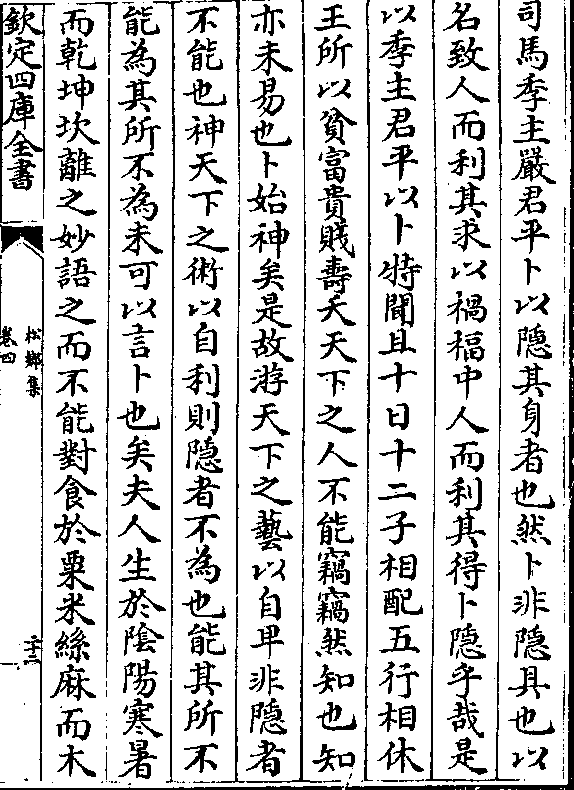 司馬季主嚴君平卜以隱其身者也然卜非隱具也以
名致人而利其求以禍福中人而利其得卜隱乎哉是
以季主君平以卜特聞且十日十二子相配五行相休
王所以貧富貴賤壽夭天下之人不能竊竊然知也知
亦未易也卜始神矣是故游天下之藝以自卑非隱者
不能也神天下之術以自利則隱者不為也能其所不
能為其所不為未可以言卜也矣夫人生於陰陽寒暑
而乾坤坎離之妙語之而不能對食於粟米絲麻而木
欽定四庫全書
松鄉集
卷四
二十二